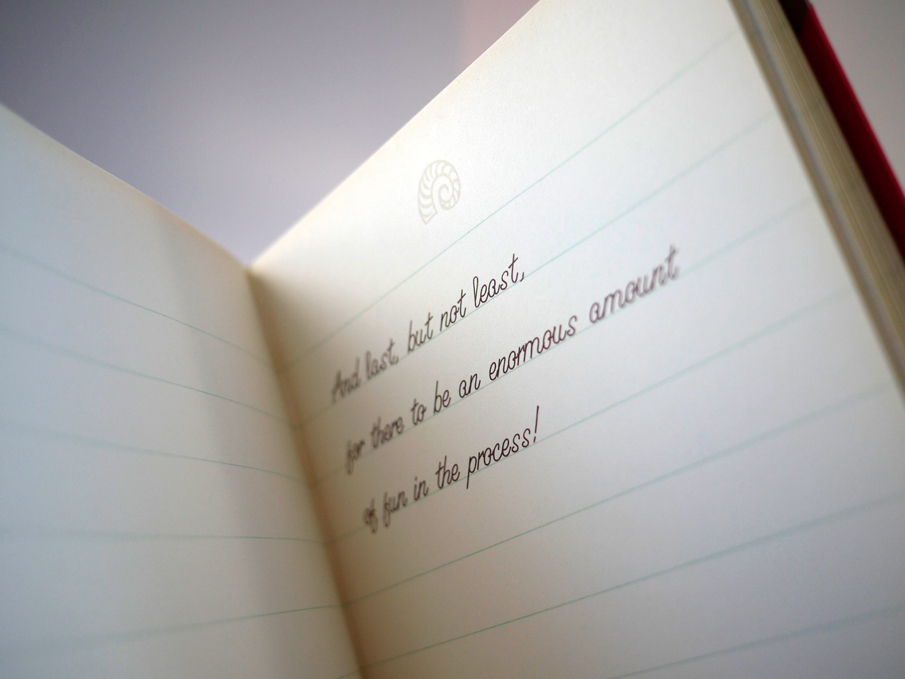 And last, but not least,
for there to be an enormous amount
of fun in the process!